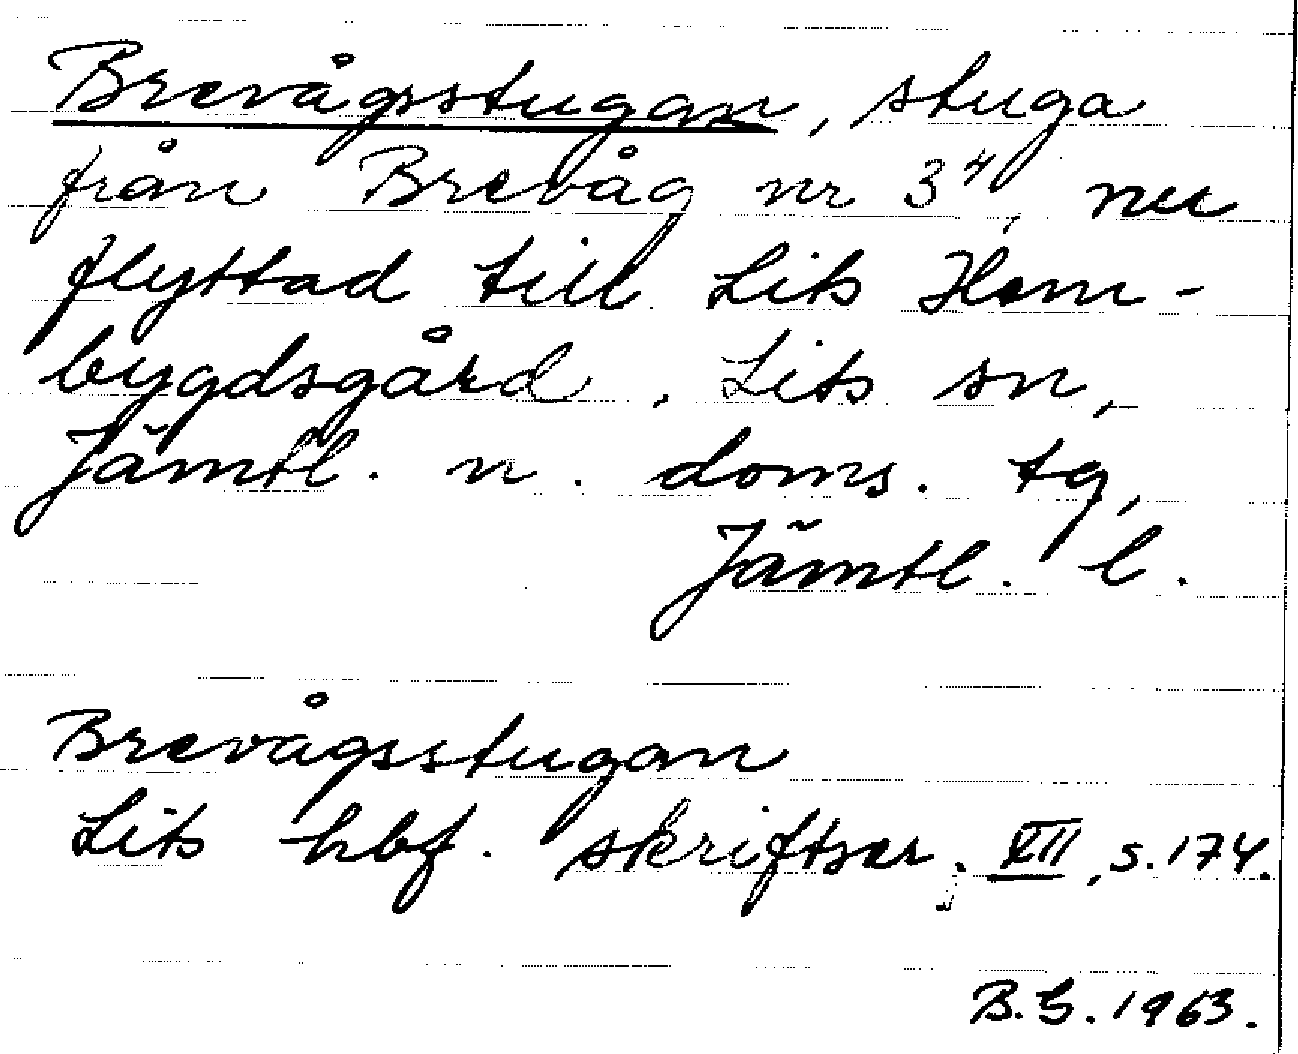 Brevågsstugan, stuga
från Brevåg nr 3⁴, nu
flyttad till Lits Hem-
bygdsgård. Lits sn,
Jämtl. n. doms. tg,
Jämtl. l.
Brevågsstugan
Lits hbf. skriftser. VII, s. 174.
B.G. 1963.